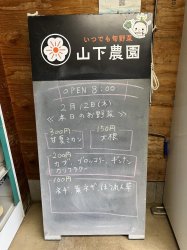 いつでも旬野菜
山下農園
OPEN 8:00
2月12日(水)
≪本日のお野菜≫
300円
甘夏ミカン
150円
大根
200円
カブ ブロッコリー チンゲン
カリフラワー
100円
ネギ 葉ネギ ほうれん草